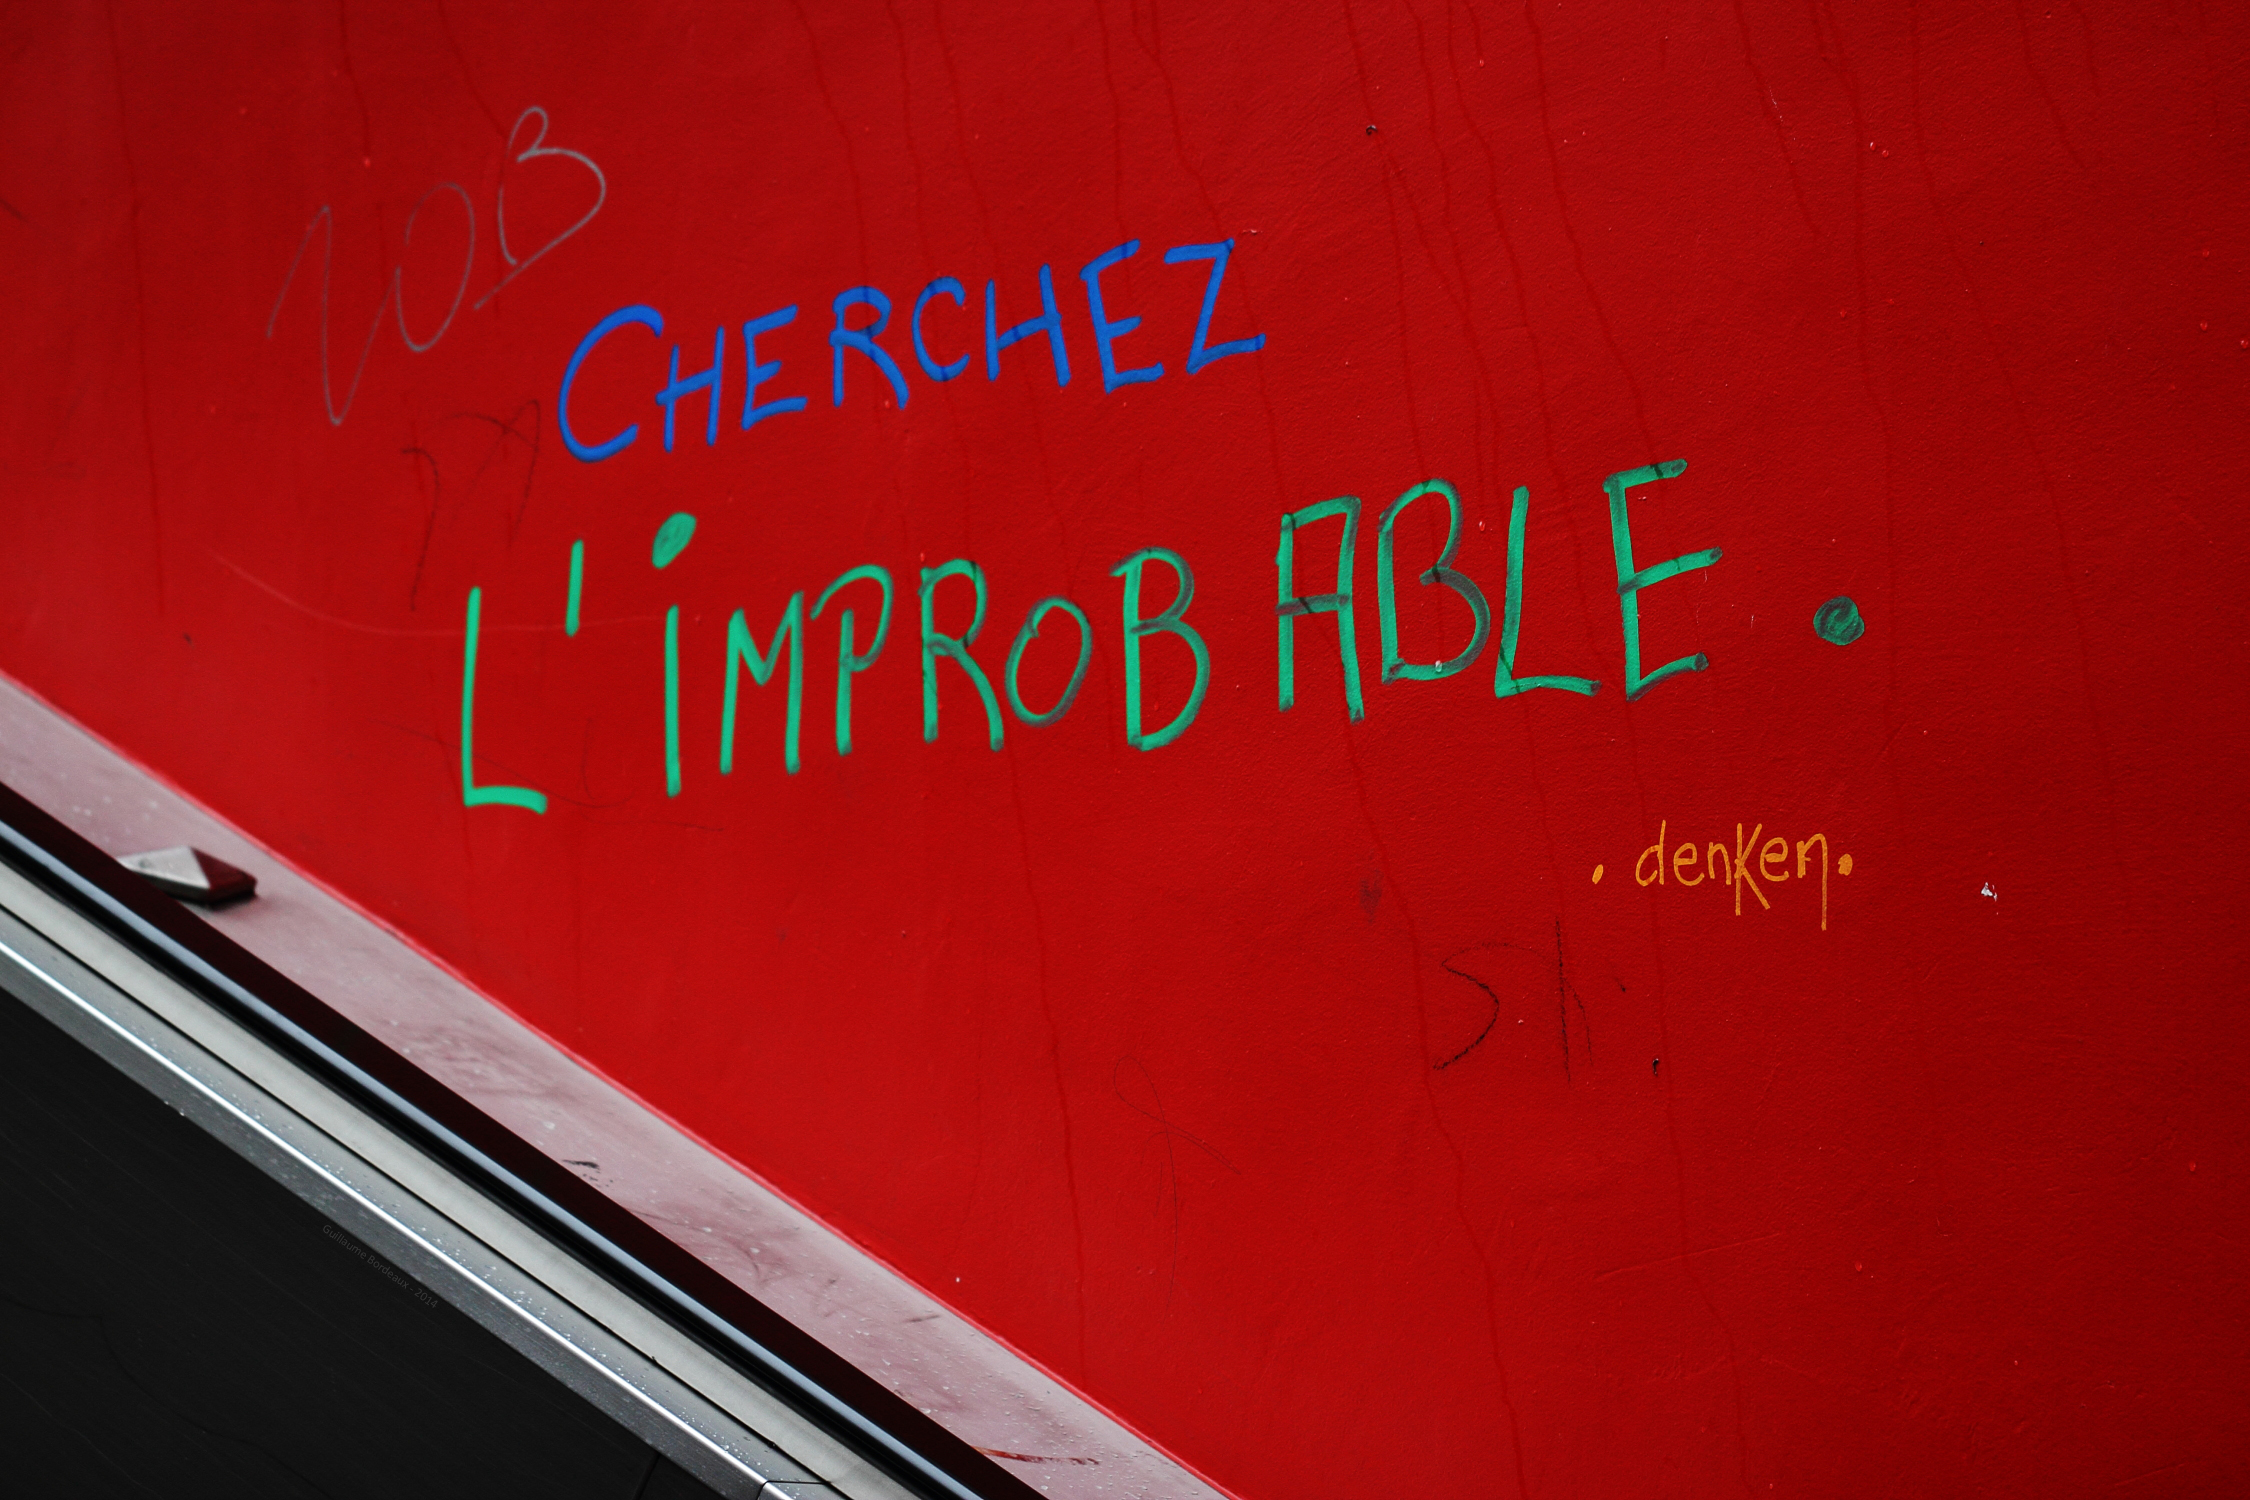 ZOB
CHERCHEZ
L'iMPROBABLE.
. denken.
Sh
Guillaume Bordeaux - 2014